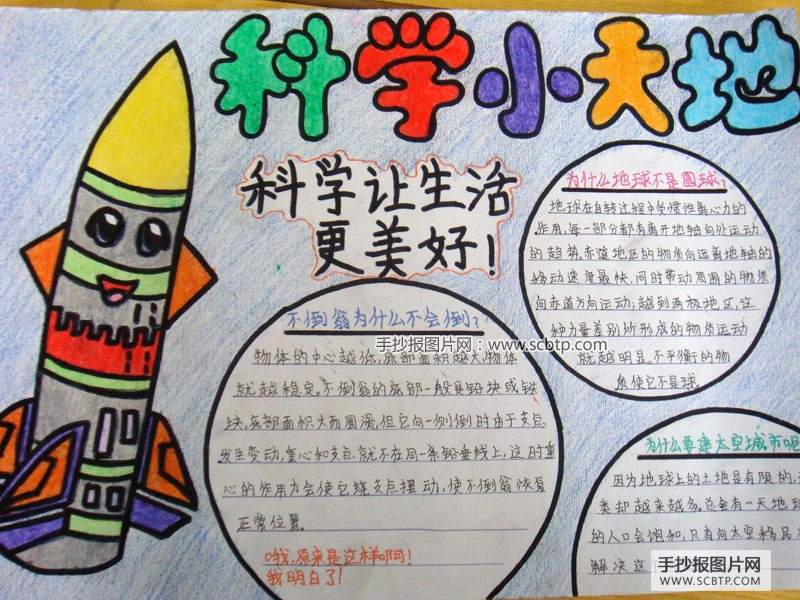 科学小天地
科学让生活
更美好!
为什么地球不是圆球?
地球在自转过程中受惯性离心力的
作用,每一部分都有离开地轴向外运动
的趋势,赤道地区的物质向远离地轴的
移动速度最快,同时带动周围的物质
向赤道方向运动;越到两极地区,这
种力量差别所形成的物质运动
就越明显。不平衡的物
质使它不是球。
不倒翁为什么不会倒?
手抄报图片网:www.scbtp.com
物体的中心越低,底部面积越大,物体
就越稳定。不倒翁的底部一般是铅块或铁
块,底部面积大而圆滑,但它向一侧倒时由于支点
发生变动,重心和支点就不在同一条铅垂线上,这时重
心的作用力会使它绕支点摆动,使不倒翁恢复
正常位置。
哦,原来是这样啊!
我明白了!
为什么要建太空城市呢
因为地球上的土地是有限的,
类却越来越多,总会有一天地球
的人口会饱和,只有向太空移民
解决这
手抄报图片网
WWW.SCBTP.COM